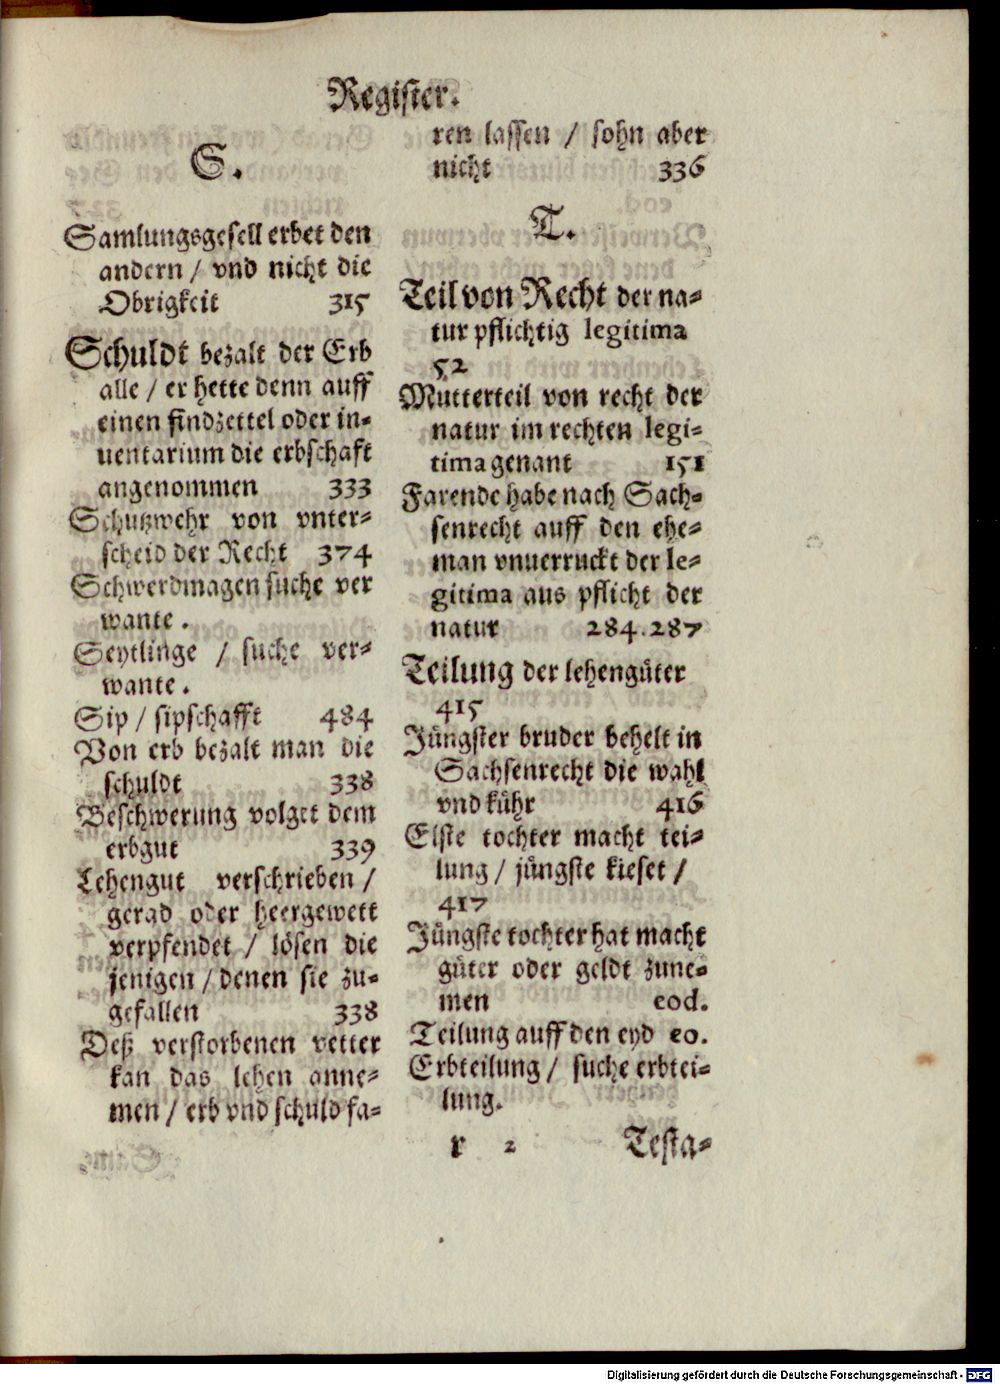 Register.
S.
Samlungsgesell erbet den
andern / vnd nicht die
Obrigkeit 315
Schuldt bezalt der Erb
alle / er hette denn auff
einen findzettel oder in-
uentarium die erbschaft
angenommen 333
Schutzwehr von vnter-
scheid der Recht 374
Schwerdmagen suche ver
wante.
Seytlinge / suche ver-
wante.
Sip / sipschafft 484
Von erb bezalt man die
schuldt 338
Beschwerung volget dem
erbgut 339
Lehengut verschrieben /
gerad oder heergewett
verpfendet / lösen die
jenigen / denen sie zu-
gefallen 338
Deß verstorbenen vetter
kan das lehen anne-
men / erb vnd schuld fa-
ren lassen / sohn aber
nicht 336
T.
Teil von Recht der na-
tur pflichtig legitima
52
Mutterteil von recht der
natur im rechten legi-
tima genant 151
Farende habe nach Sach-
senrecht auff den ehe-
man vnuerruckt der le-
gitima aus pflicht der
natur 284.287
Teilung der lehengüter
415
Jüngster bruder behelt in
Sachsenrecht die wahl
vnd kühr 416
Elste tochter macht tei-
lung / jüngste kieset /
417
Jüngste tochter hat macht
güter oder geldt zune-
men eod.
Teilung auff den eyd eo.
Erbteilung / suche erbtei-
lung.
r 2 Testa-
Digitalisierung gefördert durch die Deutsche Forschungsgemeinschaft - DFG